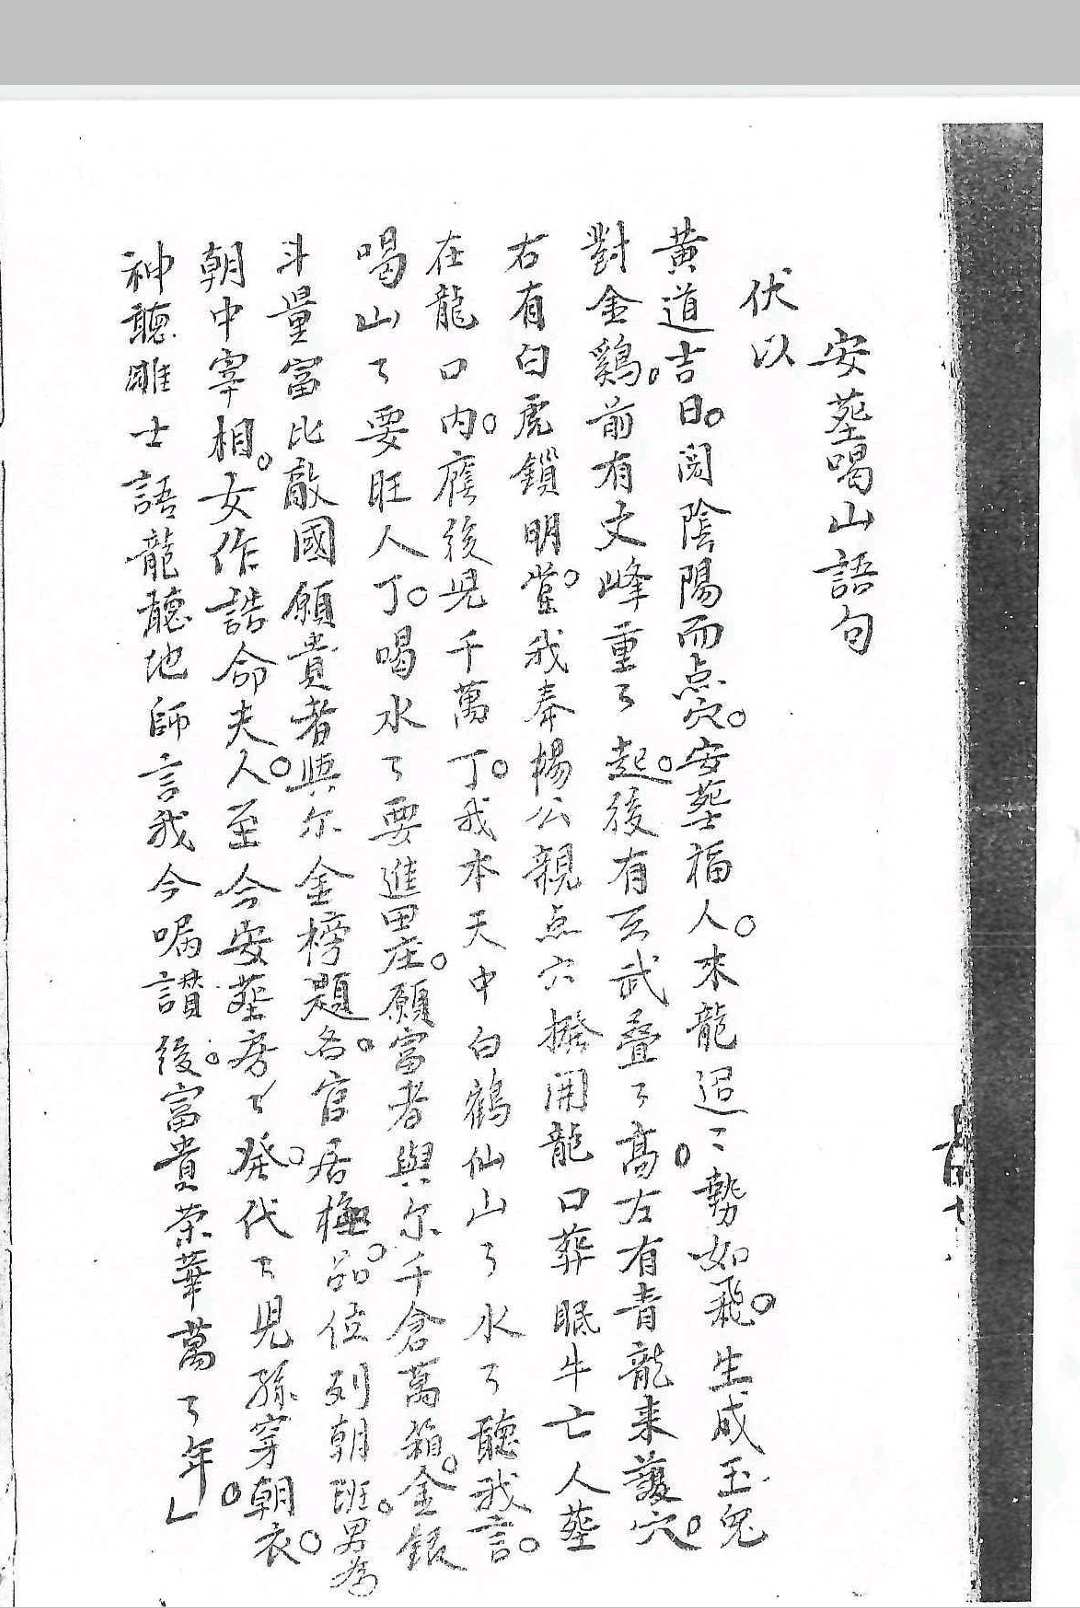 安葬喝山語句
伏以
黄道吉日。闵陰陽而点穴。安葬福人。来龍迢〻勢如飛。生成玉兔
對金鷄。前有文峰重〻起。後有玄武叠〻高。左有青龍来護穴。
右有白虎鎖明堂。我奉楊公親点穴撥開龍口葬眠牛亡人葬
在龍口内。廕後児千萬丁。我本天中白鶴仙山〻水〻聽我言。
喝山〻要旺人丁。喝水〻要進田庄。願富者與尔千倉萬箱。金銀
斗量富比敵國願貴者與尔金榜題名。官居極品。位列朝班。男為
朝中宰相。女作誥命夫人。至今安葬房〻發。代〻児孫穿朝衣。
神聽雅士語龍聽地師言我今嘱讃後。富貴荣華萬〻年。